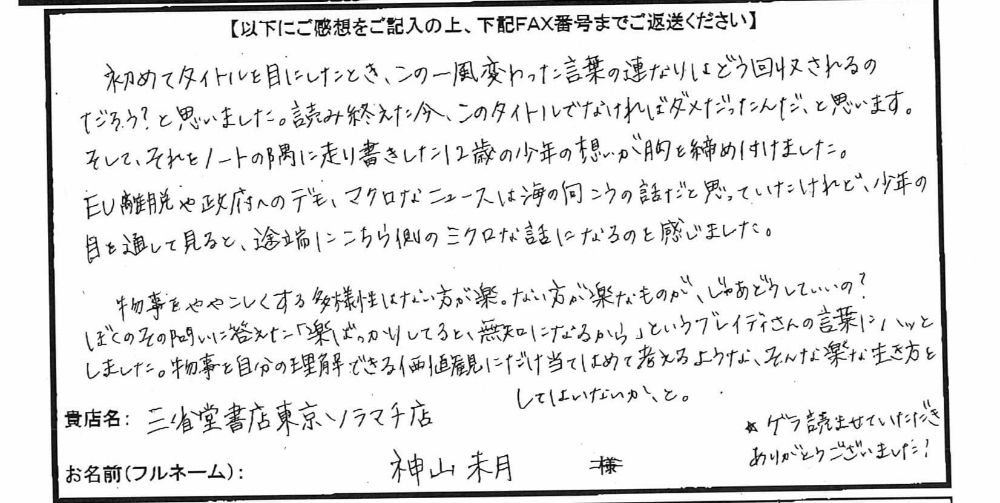 【以下にご感想をご記入の上、下記FAX番号までご返送ください】
初めてタイトルを目にしたとき、この一風変わった言葉の連なりはどう回収されるの
だろう?と思いました。読み終えた今、このタイトルでなければダメだったんだ、と思います。
そして、それをノートの隅に走り書きした12歳の少年の想いが胸を締め付けました。
EU離脱や政府へのデモ、マクロなニュースは海の向こうの話だと思っていたけれど、少年の
目を通して見ると、途端にこちら側のミクロな話になるのを感じました。
物事をややこしくする多様性はない方が楽。ない方が楽なものが、じゃあどうしていいの?
ぼくのその問いに答えた「楽ばっかりしてると、無知になるから」というブレイディさんの言葉にハッと
しました。物事を自分の理解できる価値観にだけ当てはめて考えるような、そんな楽な生き方を
してはいないか、と。
貴店名: 三省堂書店東京ソラマチ店
★ゲラ読ませていただき
ありがとうございました!
お名前(フルネーム): 神山未月 様